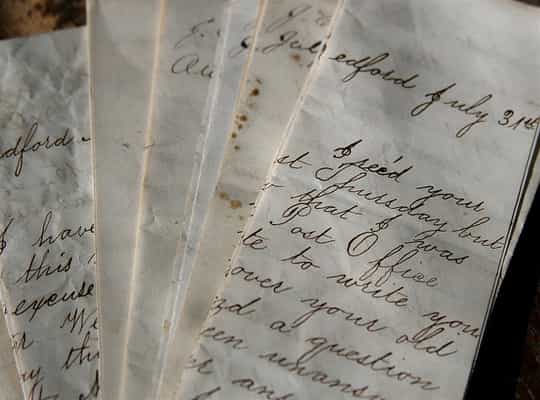 dford
I have
this
excuse
We
J.
Au
J. Jul
edford July 31st
I rec'd your
st Thursday but
r that I was
Post Office
te to write you
over your old
nd a question
een unansw
r ans